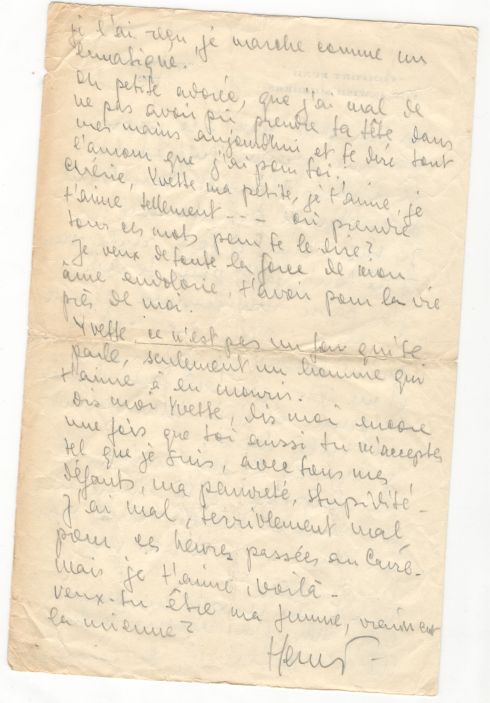 je l'ai reçu, je marche comme un
lunatique.
Oh petite adorée, que j'ai mal de
ne pas avoir pu prendre ta tête dans
mes mains aujourd'hui et te dire tout
l'amour que j'ai pour toi.
Chérie, Yvette ma petite, je t'aime, je
t'aime tellement --- où prendre
tous ces mots pour te le dire?
Je veux de toute la force de mon
âme endolorie, t'avoir pour la vie
près de moi.
Yvette, ce n'est pas un fou qui te
parle, seulement un homme qui
t'aime à en mourir.
Dis moi Yvette, dis moi encore
une fois que toi aussi tu m'acceptes
tel que je suis, avec tous mes
défauts, ma pauvreté, stupidité -
J'ai mal, terriblement mal
pour ces heures passées au
mais je t'aime, voilà -
veux-tu être ma femme, vraiment
la mienne?